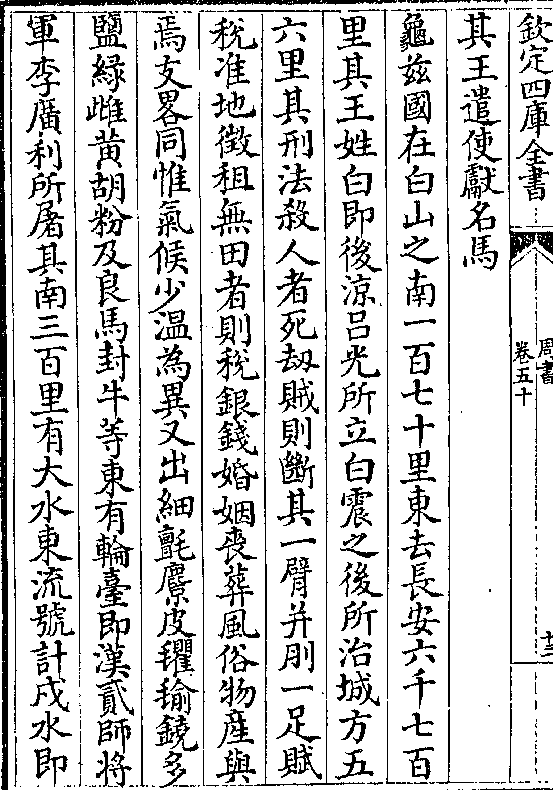 欽定四庫全書
周書
卷五十
十三
其王遣使獻名馬
龜兹國在白山之南一百七十里東去長安六千七百
里其王姓白即後涼吕光所立白震之後所治城方五
六里其刑法殺人者死劫賊則斷其一臂并刖一足賦
稅准地徵租無田者則稅銀錢婚姻喪葬風俗物産與
焉支畧同惟氣候少温為異又出細氈麖皮氍毹鐃多
鹽緑雌黄胡粉及良馬封牛等東有輪臺即漢貳師將
軍李廣利所屠其南三百里有大水東流號計戍水即